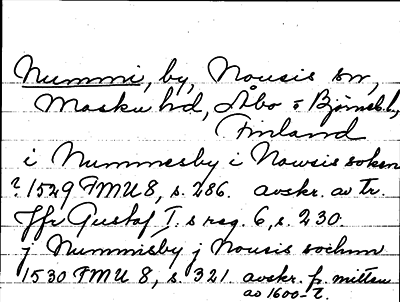 Nummi, by, Nousis sn,
Masku hd, Åbo o Björneb. l,
Finland
i Nummesby i Nowsis soken
? 1529 FMU 8, s. 286. avskr. av tr.
Jfr Gustaf I. s reg. 6, s. 230.
j Nummisby j Nousis sochnn
1530 FMU 8, s. 321. avskr. fr. mitten
av 1600-t.